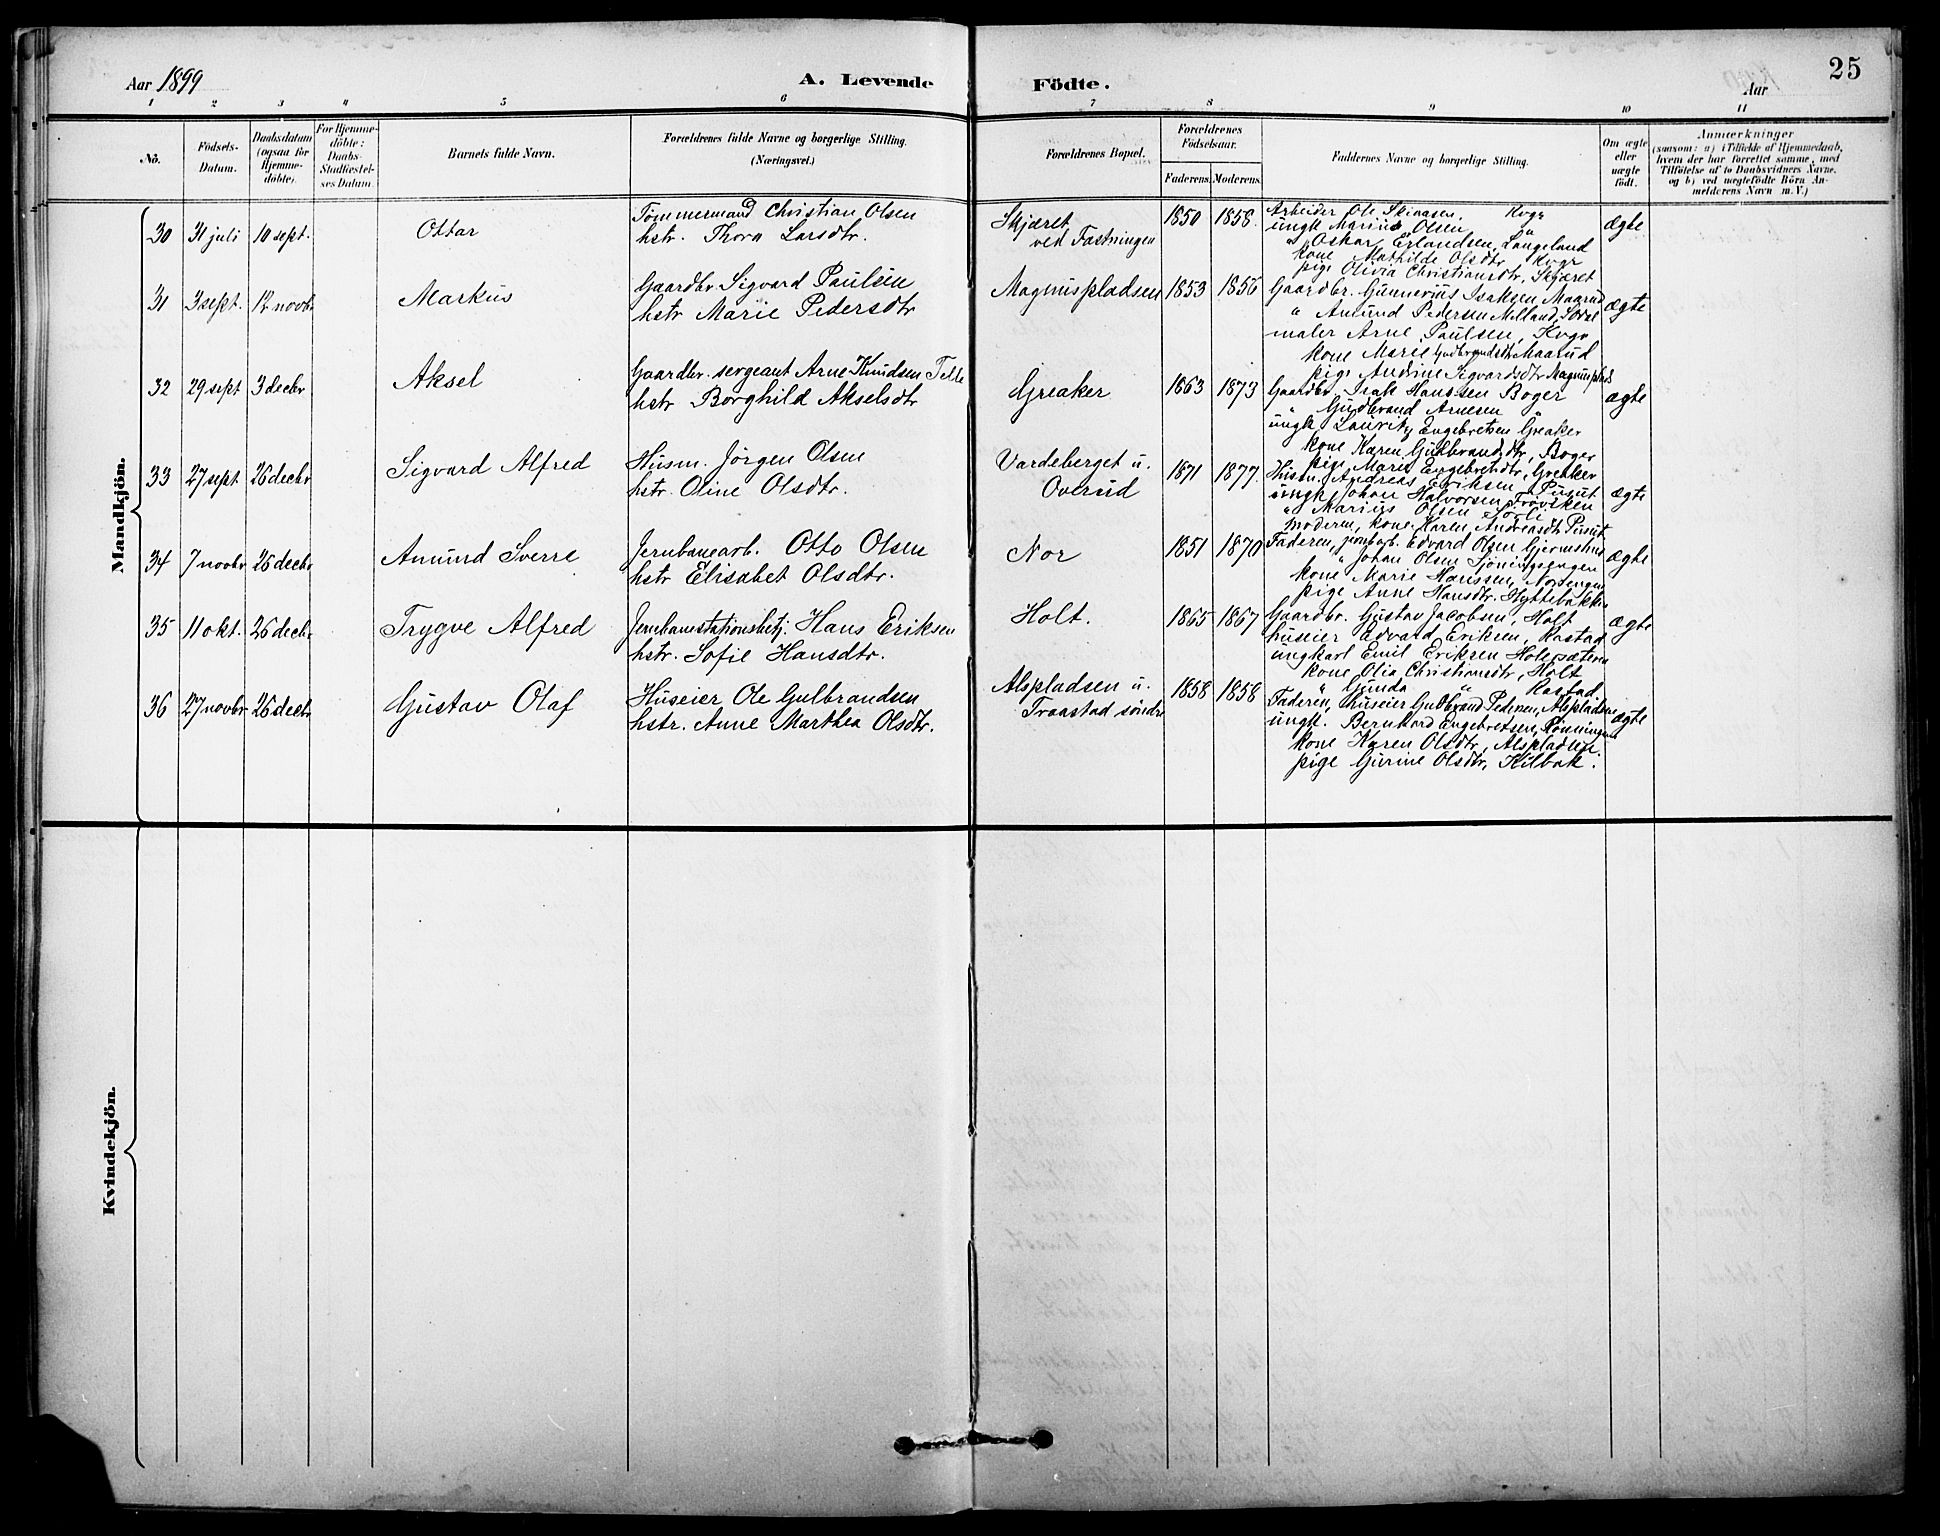 Aar 1899
A. Levende
Födte.
Aar
25
1 2 3 4 5 6 7 8 9 10 11
No.
Födsels-
Datum.
Daabsdatum
(ogsaa for
Hjemme-
döbte).
For Hjemme-
döbte:
Daabs-
Stadfæstel-
ses Datum.
Barnets fulde Navn.
Forældrenes fulde Navne og borgerlige Stilling.
(Næringsvei.)
Forældrenes Bopæl.
Forældrenes
Födselsaar.
Faderens. Moderens.
Faddernes Navne og borgerlige Stilling.
Om ægte
eller
uægte
födt.
Anmærkninger
(saasom: a) i Tilfælde af Hjemmedaab,
hvem der har forrettet samme, med
Tilföielse af to Daabsvidners Navne,
og b) ved uægtefödte Börn An-
melderens Navn m. V.)
Mandkjön.
30 31 juli 10 sept. Ottar
Tömmermand Christian Olsen
hstr. Thora Larsdtr.
Skjæret
ved Fæstningen
1850 1858.
Arbeider Ole Skinasen, Kvgr
ungk Marius Olsen "
" Oskar Erlandsen, Langeland
kone Mathilde Olsdtr Kvgr
pige Olivia Christiansdtr, Skjæret
ægte
31 3 sept. 12 novbr Markus
Gaardbr. Sigvard Paulsen
hstr Marie Pedersdtr
Magnuspladsen
1853 1856
Gaardbr. Gunnerius Isaksen, Maarud
" Amund Pedersen Melland,
maler Arne Paulsen, Kvgr
kone Marie Gudbrandsdtr Maarud
pige Andrine Sigvardsdtr Magnusplads
ægte
32 29 sept 3 decbr Aksel
Gaardbr. sergeant Arne Knudsen
hstr Borghild Akselsdtr
Greaker
1863 1873
Gaardbr. Isak Hanssen Boger
" Gudbrand Arnesen "
ungk Lauritz Engebretsen Greaker
kone Karen Gulbrandsdtr, Boger
pige Marie Engebretsdtr, Greaker
ægte
33 27 sept 26 decbr Sigvard Alfred
Husm. Jörgen Olsen
hstr. Oline Olsdtr.
Vardeberget u.
Overud
1871 1877.
Husm. Andreas Eriksen, Pusut
ungk Johan Halvorsen
" Marius Olsen
Moderen, kone Karen Andreasdtr Pusut
ægte
34 7 novbr 26 decbr Amund Sverre
Jernbanearb. Otto Olsen
hstr Elisabet Olsdtr.
Nor
1851 1870
Faderen, jernbarb. Edvard Olsen
" Johan Olsen
kone Marie Hanssen, Norengen
pige Anne Hansdtr. Hyttebakken
ægte
35 11 okt. 26 decbr Trygve Alfred
Jernbanestationsbetj. Hans Eriksen
hstr. Sofie Hansdtr.
Holt.
1865 1867
Gaardbr. Gustav Jacobsen, Holt
huseier Edvard Eriksen, Rastad
ungkarl Emil Eriksen Holtsæteren
kone Olia Christiansdtr, Holt
" Gunda " Rastad
ægte
36 27 novbr 26 decbr Gustav Olaf
Huseier Ole Gulbrandsen
hstr. Anne Marthea Olsdtr.
Alspladsen u.
Traastad söndre
1858 1858
Faderen, huseier Gulbrand Pedersen, Alspladsen
ungk. Bernhard Engebretsen, Rönningen
kone Karen Olsdtr, Alspladsen.
pige Gurine Olsdtr, Kilbak.
ægte
Kvindekjön.